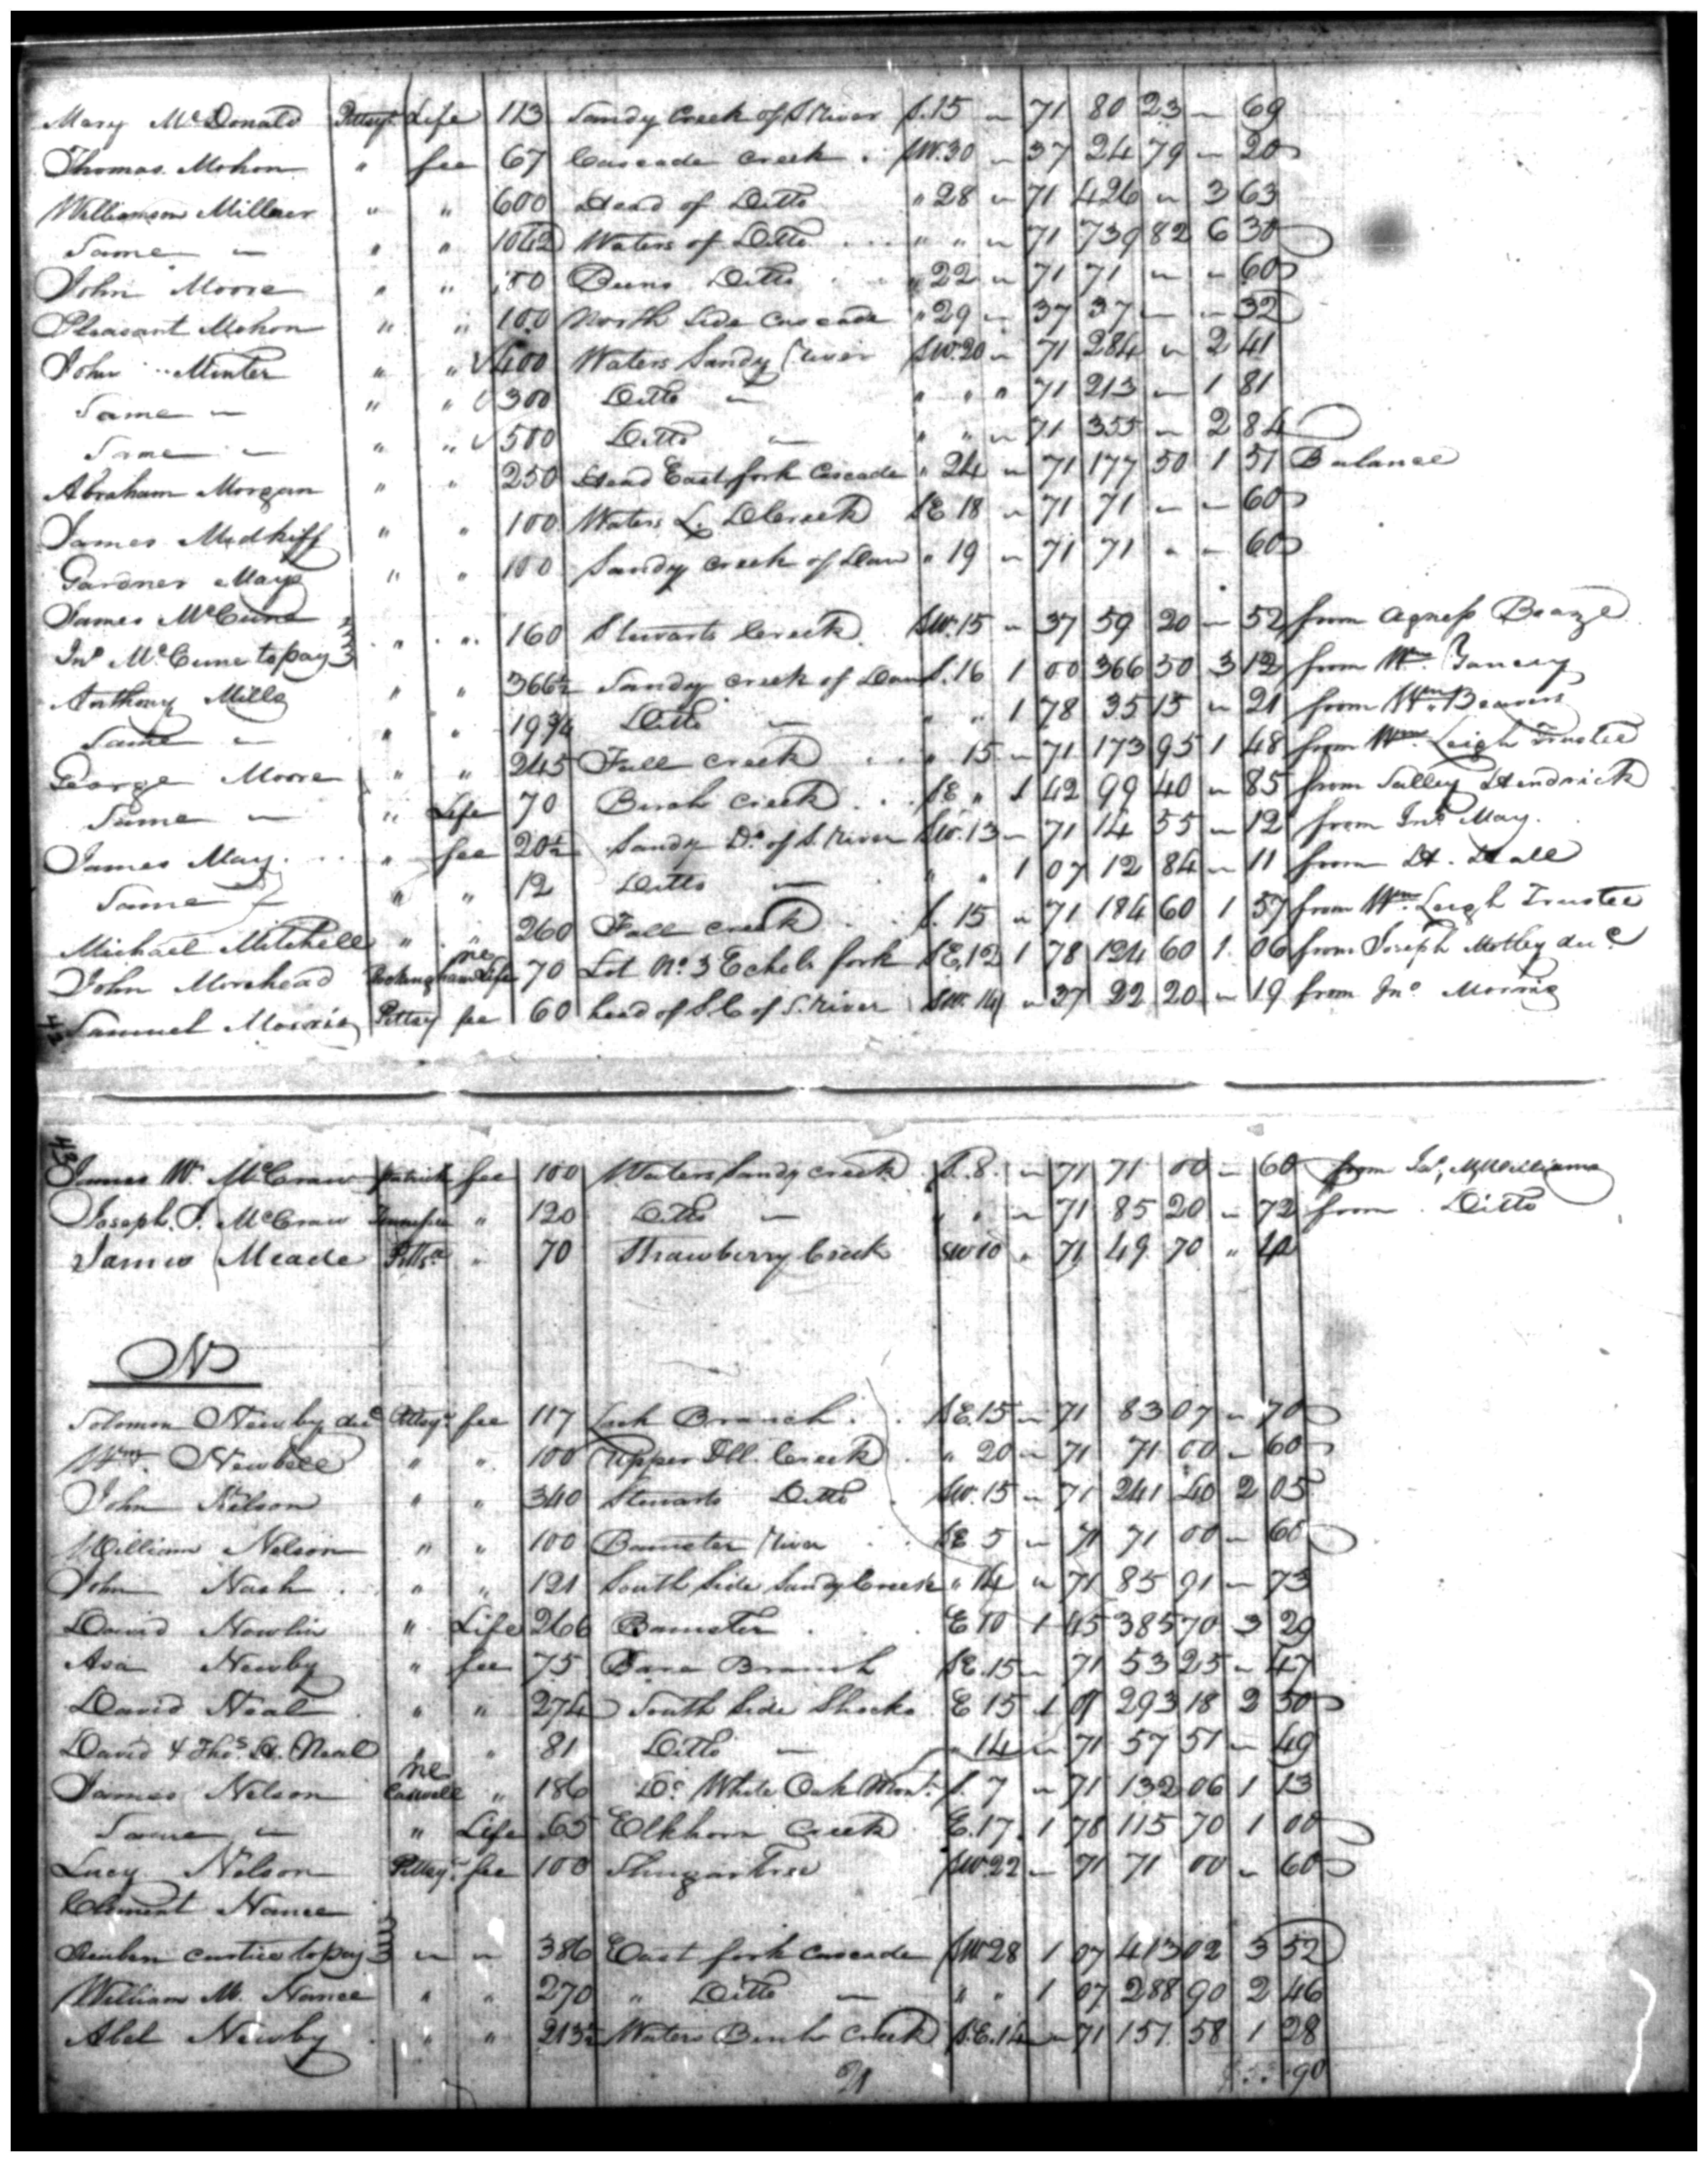 Mary McDonald Pittsy. Life 113 Sandy Creek of S River S. 15 " 71 80 23 " 69
Thomas Mohon " fee 67 Cascade Creek SW. 30 " 37 24 79 " 20
Williamson Millner " " 600 Head of Ditto " 28 " 71 426 " 3 63
Same " " " 1042 Waters of Ditto " " " 71 739 82 6 30
John Moore " " 100 Ditto " 22 " 71 71 " " 60
Pleasant Mohon " " 100 North Side Cascade " 29 " 37 37 " " 32
John Minter " " √ 400 Waters Sandy River SW. 20 " 71 284 " 2 41
Same " " " √ 300 Ditto " " " " 71 213 " 1 81
Same " " " √ 500 Ditto " " " " 71 355 " 2 84
Abraham Morgan " " 250 Head East fork Cascade " 24 " 71 177 50 1 51 Balance
James Midkiff " " 100 Waters SE 18 " 71 71 " " 60
Gardner Mays " " 100 Sandy Creek of Dan " 19 " 71 71 " " 60
James McCune
Jno McCune to pay " " 160 Stewarts Creek SW. 15 " 37 59 20 " 52 from Agness Beaze
Anthony Mills " " 366½ Sandy Creek of Dan S. 16 1 00 366 50 3 12 from Wm. Yancey
Same " " " 19¾ Ditto " " " 1 78 35 15 " 21 from Wm. Beavers
George Moore " " 245 Fall Creek " 15 " 71 173 95 1 48 from Wm. Leigh Trustee
Same " " Life 70 Birch Creek SE " 1 42 99 40 " 85 from Salley Hendrick
James May " fee 20½ Sandy Do. of S. River SW. 13 " 71 14 55 " 12 from Jno. May.
Same " " " 12 Ditto " " " 1 07 12 84 " 11 from H. Hall
Michael Mitchell " " 260 Fall Creek S. 15 " 71 184 60 1 57 from Wm. Leigh Trustee
John Morehead Rockingham nc Life 70 Lot No. 3 Echols fork SE. 12 1 78 124 60 1 06 from Joseph Motley decd
Samuel Morris Pittsy fee 60 head of S. C of S. River SW. 14 " 37 22 20 " 19 from Jno Morris
43
James W. McCraw Patrick fee 100 Waters Sandy Creek S. 8. " 71 71 00 " 60 from Jas. McWilliams
Joseph. J. McCraw Tennessee " 120 Ditto " " " " 71 85 20 " 72 from Ditto
James Meade Pittsa " 70 Strawberry Creek SW 10 " 71 49 70 " 42
N
Solomon Newby decd Pittsy. fee 117 Lick Branch SE. 15 " 71 83 07 " 70
Wm. Newbill " " 100 Upper Dbl. Creek " 20 " 71 71 00 " 60
John Nelson " " 340 Stewarts Ditto SW. 15 " 71 241 40 2 05
William Nelson " " 100 Banister River SE. 5 " 71 71 00 " 60
John Nash " " 121 South Side Sandy Creek " 14 " 71 85 91 " 73
David Nowlin " Life 266 Banister E 10 1 45 385 70 3 29
Asa Newby " fee 75 Branch SE. 15 " 71 53 25 " 47
David Neal " " 274 South Side Shocko E 15 1 07 293 18 2 50
David & Thos. H. Neal " " 81 Ditto " " 14 " 71 57 51 " 49
James Nelson Caswell nc " 186 Do. White Oak Mont. S. 7 " 71 132 06 1 13
Same " " Life 65 Elkhorn Creek E. 17 1 78 115 70 1 00
Lucy Nelson Pittsy. fee 100 Shugartree SW. 22 " 71 71 00 " 60
Clement Nance
Reuben Curtice to pay " " 386 East fork Cascade SW. 28 1 07 413 02 3 52
William M. Nance " " 270 " Ditto " " " 1 07 288 90 2 46
Abel Newby " " 213½ Waters Birch Creek S.E. 14 " 71 151 58 1 28
21 90